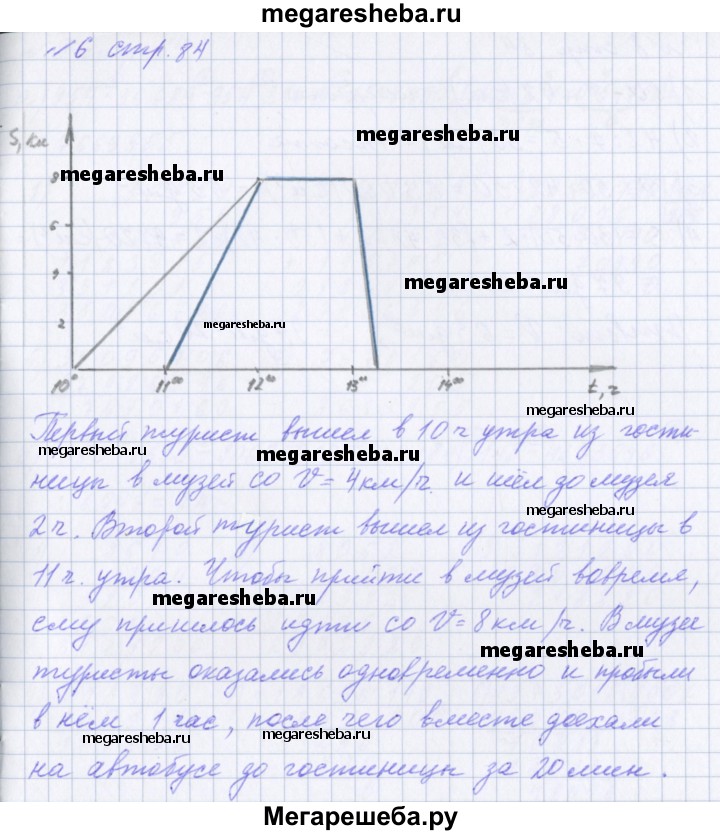 megaresheba.ru
№6 стр. 84
S, км
megaresheba.ru
megaresheba.ru
8
6
megaresheba.ru
4
megaresheba.ru
2
10⁰⁰ 11⁰⁰ 12⁰⁰ 13⁰⁰ 14⁰⁰ t, ч
megaresheba.ru
Первый турист вышел в 10 ч утра из гости-
megaresheba.ru
megaresheba.ru
ницы в музей со V = 4 км/ч. и шёл до музея
megaresheba.ru
2 ч. Второй турист вышел из гостиницы в
11 ч. утра. Чтобы прийти в музей вовремя,
megaresheba.ru
ему пришлось идти со V = 8 км/ч. В музее
megaresheba.ru
туристы оказались одновременно и пробыли
в нём 1 час, после чего вместе доехали
megaresheba.ru
megaresheba.ru
на автобусе до гостиницы за 20 мин.
Мегарешеба.ру